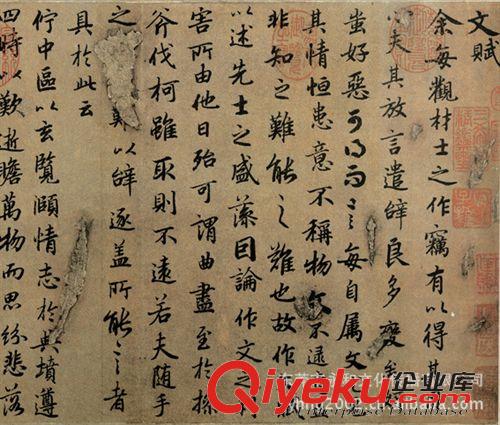 文賦
余每觀材士之作竊有以得其
夫其放言遣辭良多變矣
蚩好惡可得而言每自属文尤
其情恒患意不稱物文不逮意盖
非知之難能之難也故作文賦
以述先士之盛藻因論作文之利
害所由他日殆可謂曲盡至於操
斧伐柯雖取則不遠若夫随手
之 以辭逐盖所能言者
具於此云
佇中區以玄覽頤情志於典墳遵
四時以歎逝瞻萬物而思紛悲落
Qiyeku.com 企业库
Enterprise Database